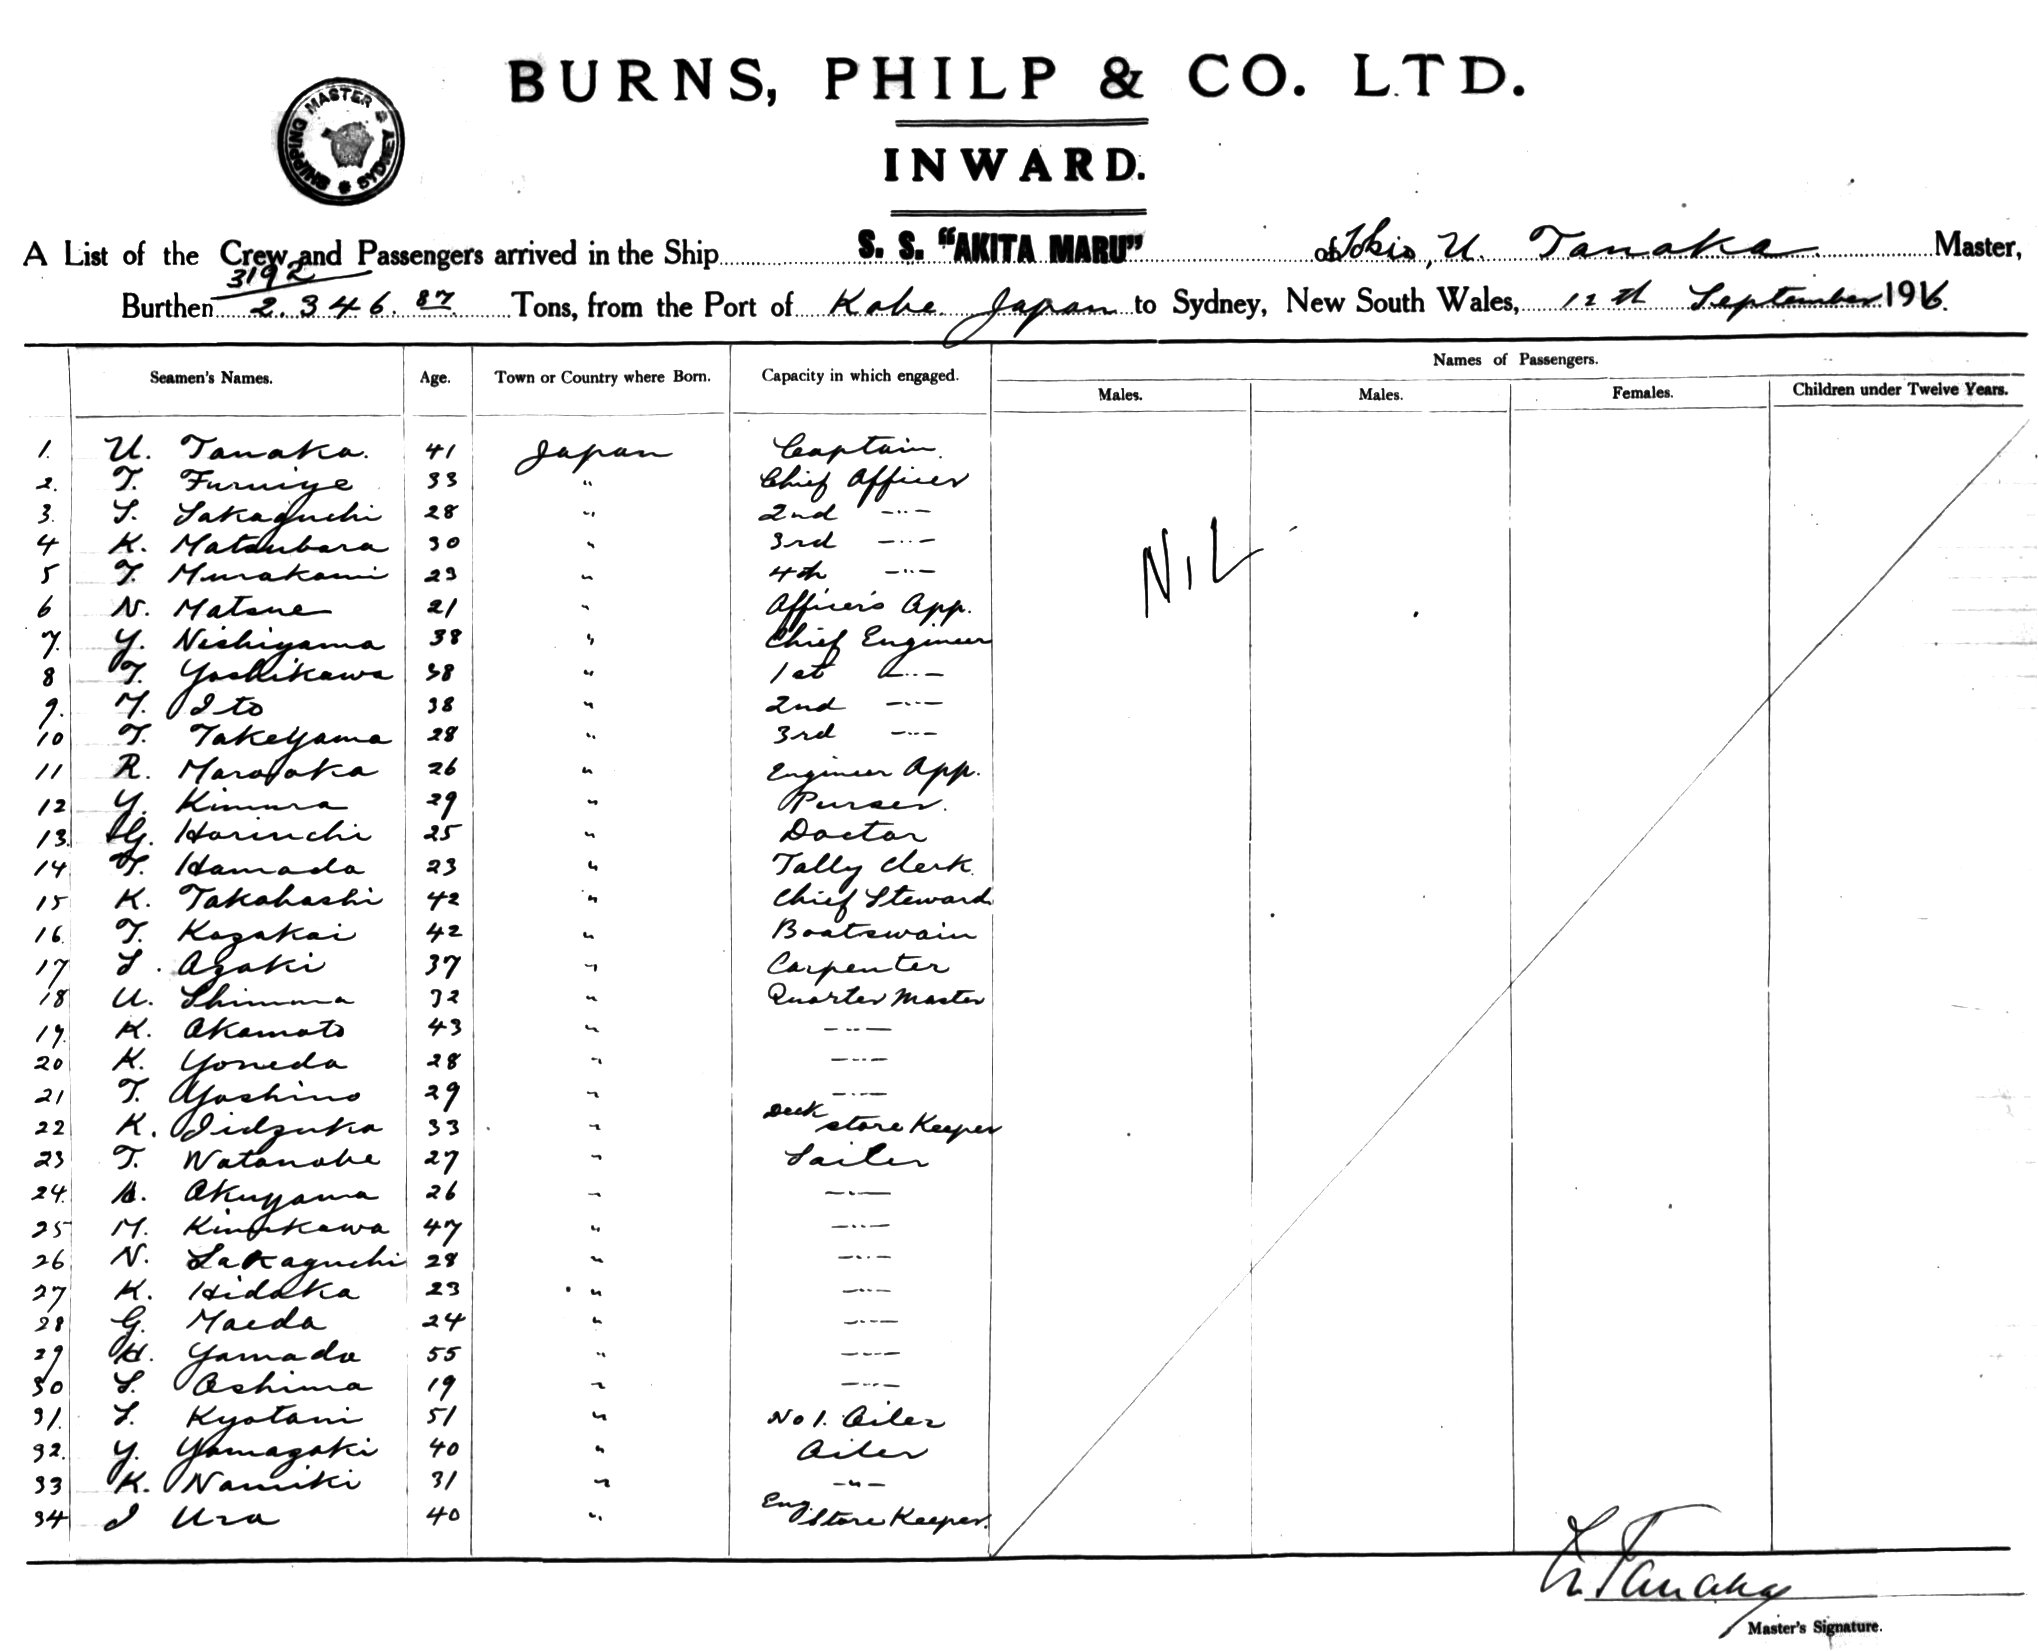 BURNS, PHILP & CO. LTD.
SHIPPING MASTER SYDNEY
INWARD.
A List of the Crew and Passengers arrived in the Ship S. S. "AKITA MARU" of Tokio, U. Tanaka Master,
3192
Burthen 2.346.87 Tons, from the Port of Kobe Japan to Sydney, New South Wales, 12th September 1916.
Names of Passengers.
Seamen's Names. Age. Town or Country where Born. Capacity in which engaged. Males. Males. Females. Children under Twelve Years.
1. U. Tanaka. 41 Japan Captain.
2. T. Furuiye 33 " Chief Officer
3. S. Sakaguchi 28 " 2nd -"-
4 K. Matsubara 30 " 3rd -"-
NIL
5 T. Murakami 23 " 4th -"-
6 N. Matsue 21 " Officer's App.
7. Y. Nishiyama 38 " Chief Engineer
8 T. Yoshikawa 38 " 1st -"-
9. Y. Ito 38 " 2nd -"-
10 T. Takeyama 28 " 3rd -"-
11 R. Maraoka 26 " Engineer App.
12 Y. Kimura 29 " Purser.
13. G. Horiuchi 25 " Doctor
14 T. Hamada 23 " Tally Clerk
15 K. Takahashi 42 " Chief Steward
16. T. Kazakai 42 " Boatswain
17 S. Azaki 37 " Carpenter
18 U. Shimma 32 " Quarter Master
19. K. Okamoto 43 " -"-
20 K. Yoneda 28 " -"-
21 T. Yoshino 29 " -"-
22 K. Iidzuka 33 " Deck store Keeper
23 T. Watanabe 27 " Sailer
24. Okuyama 26 " -"-
25 M. Kinukawa 47 " -"-
26 N. Sakaguchi 28 " -"-
27 K. Hidaka 23 " -"-
28 G. Maeda 24 " -"-
29 H. Yamada 55 " -"-
30 S. Oshima 19 " -"-
31. S. Kyotani 51 " No 1. Oiler
32. Y. Yamazaki 40 " Oiler
33 K. Namiki 31 " -"-
34 I Ura 40 " Eng. Store Keeper.
U. Tanaka
Master's Signature.